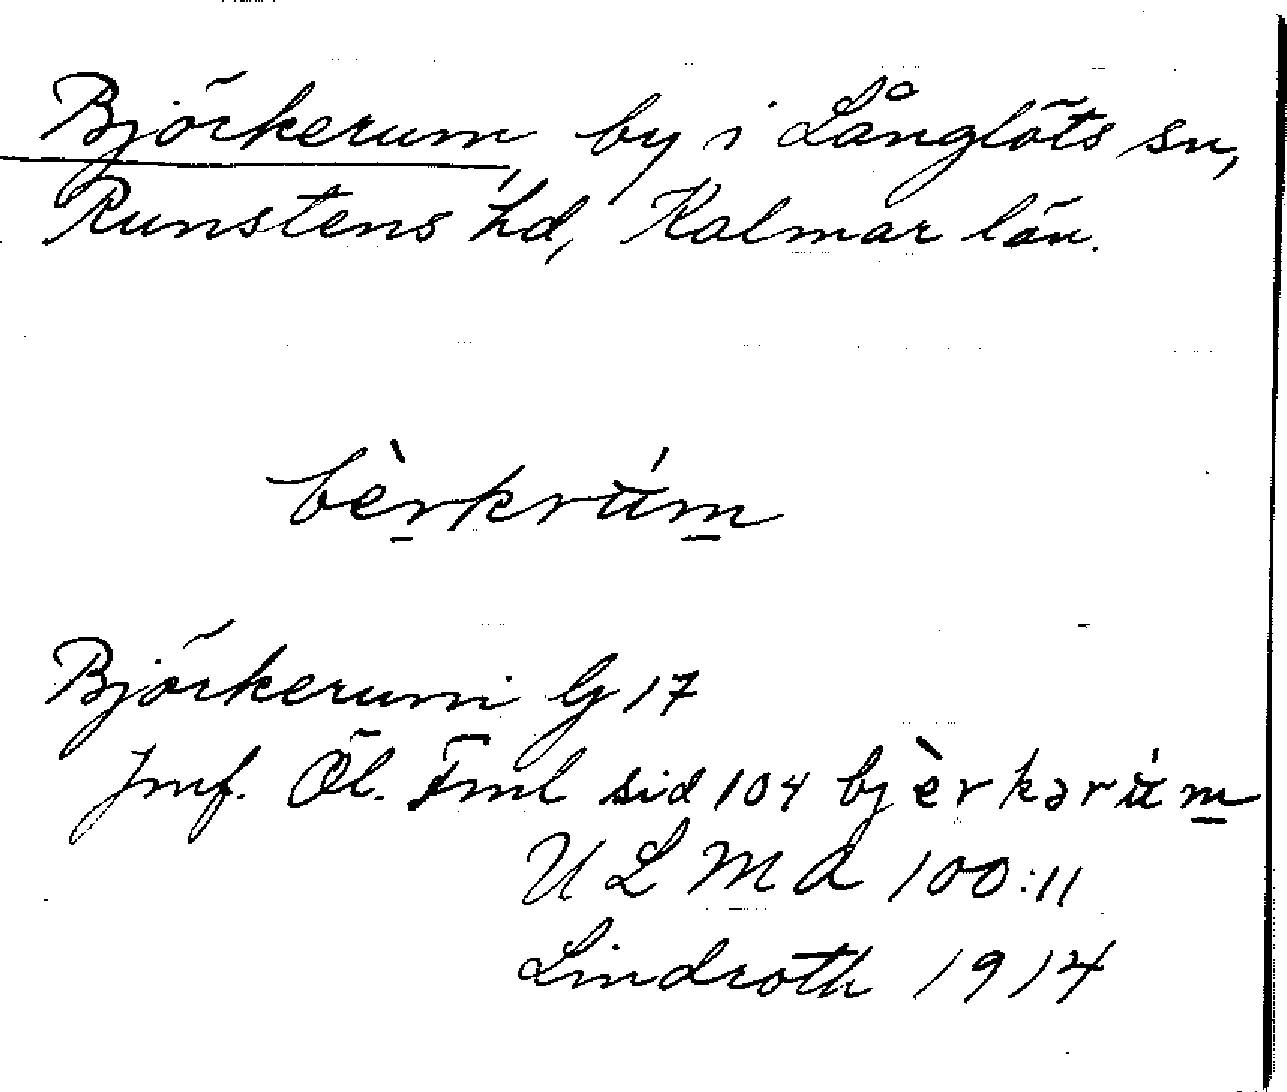 Björkerum, by i Långlöts sn,
Runstens hd, Kalmar län.
bèrkrúm
Björkerum G 17
Jmf. Öl. Fml sid 104 bjèrkərúm
U L M A 100:11
Lindroth 1914